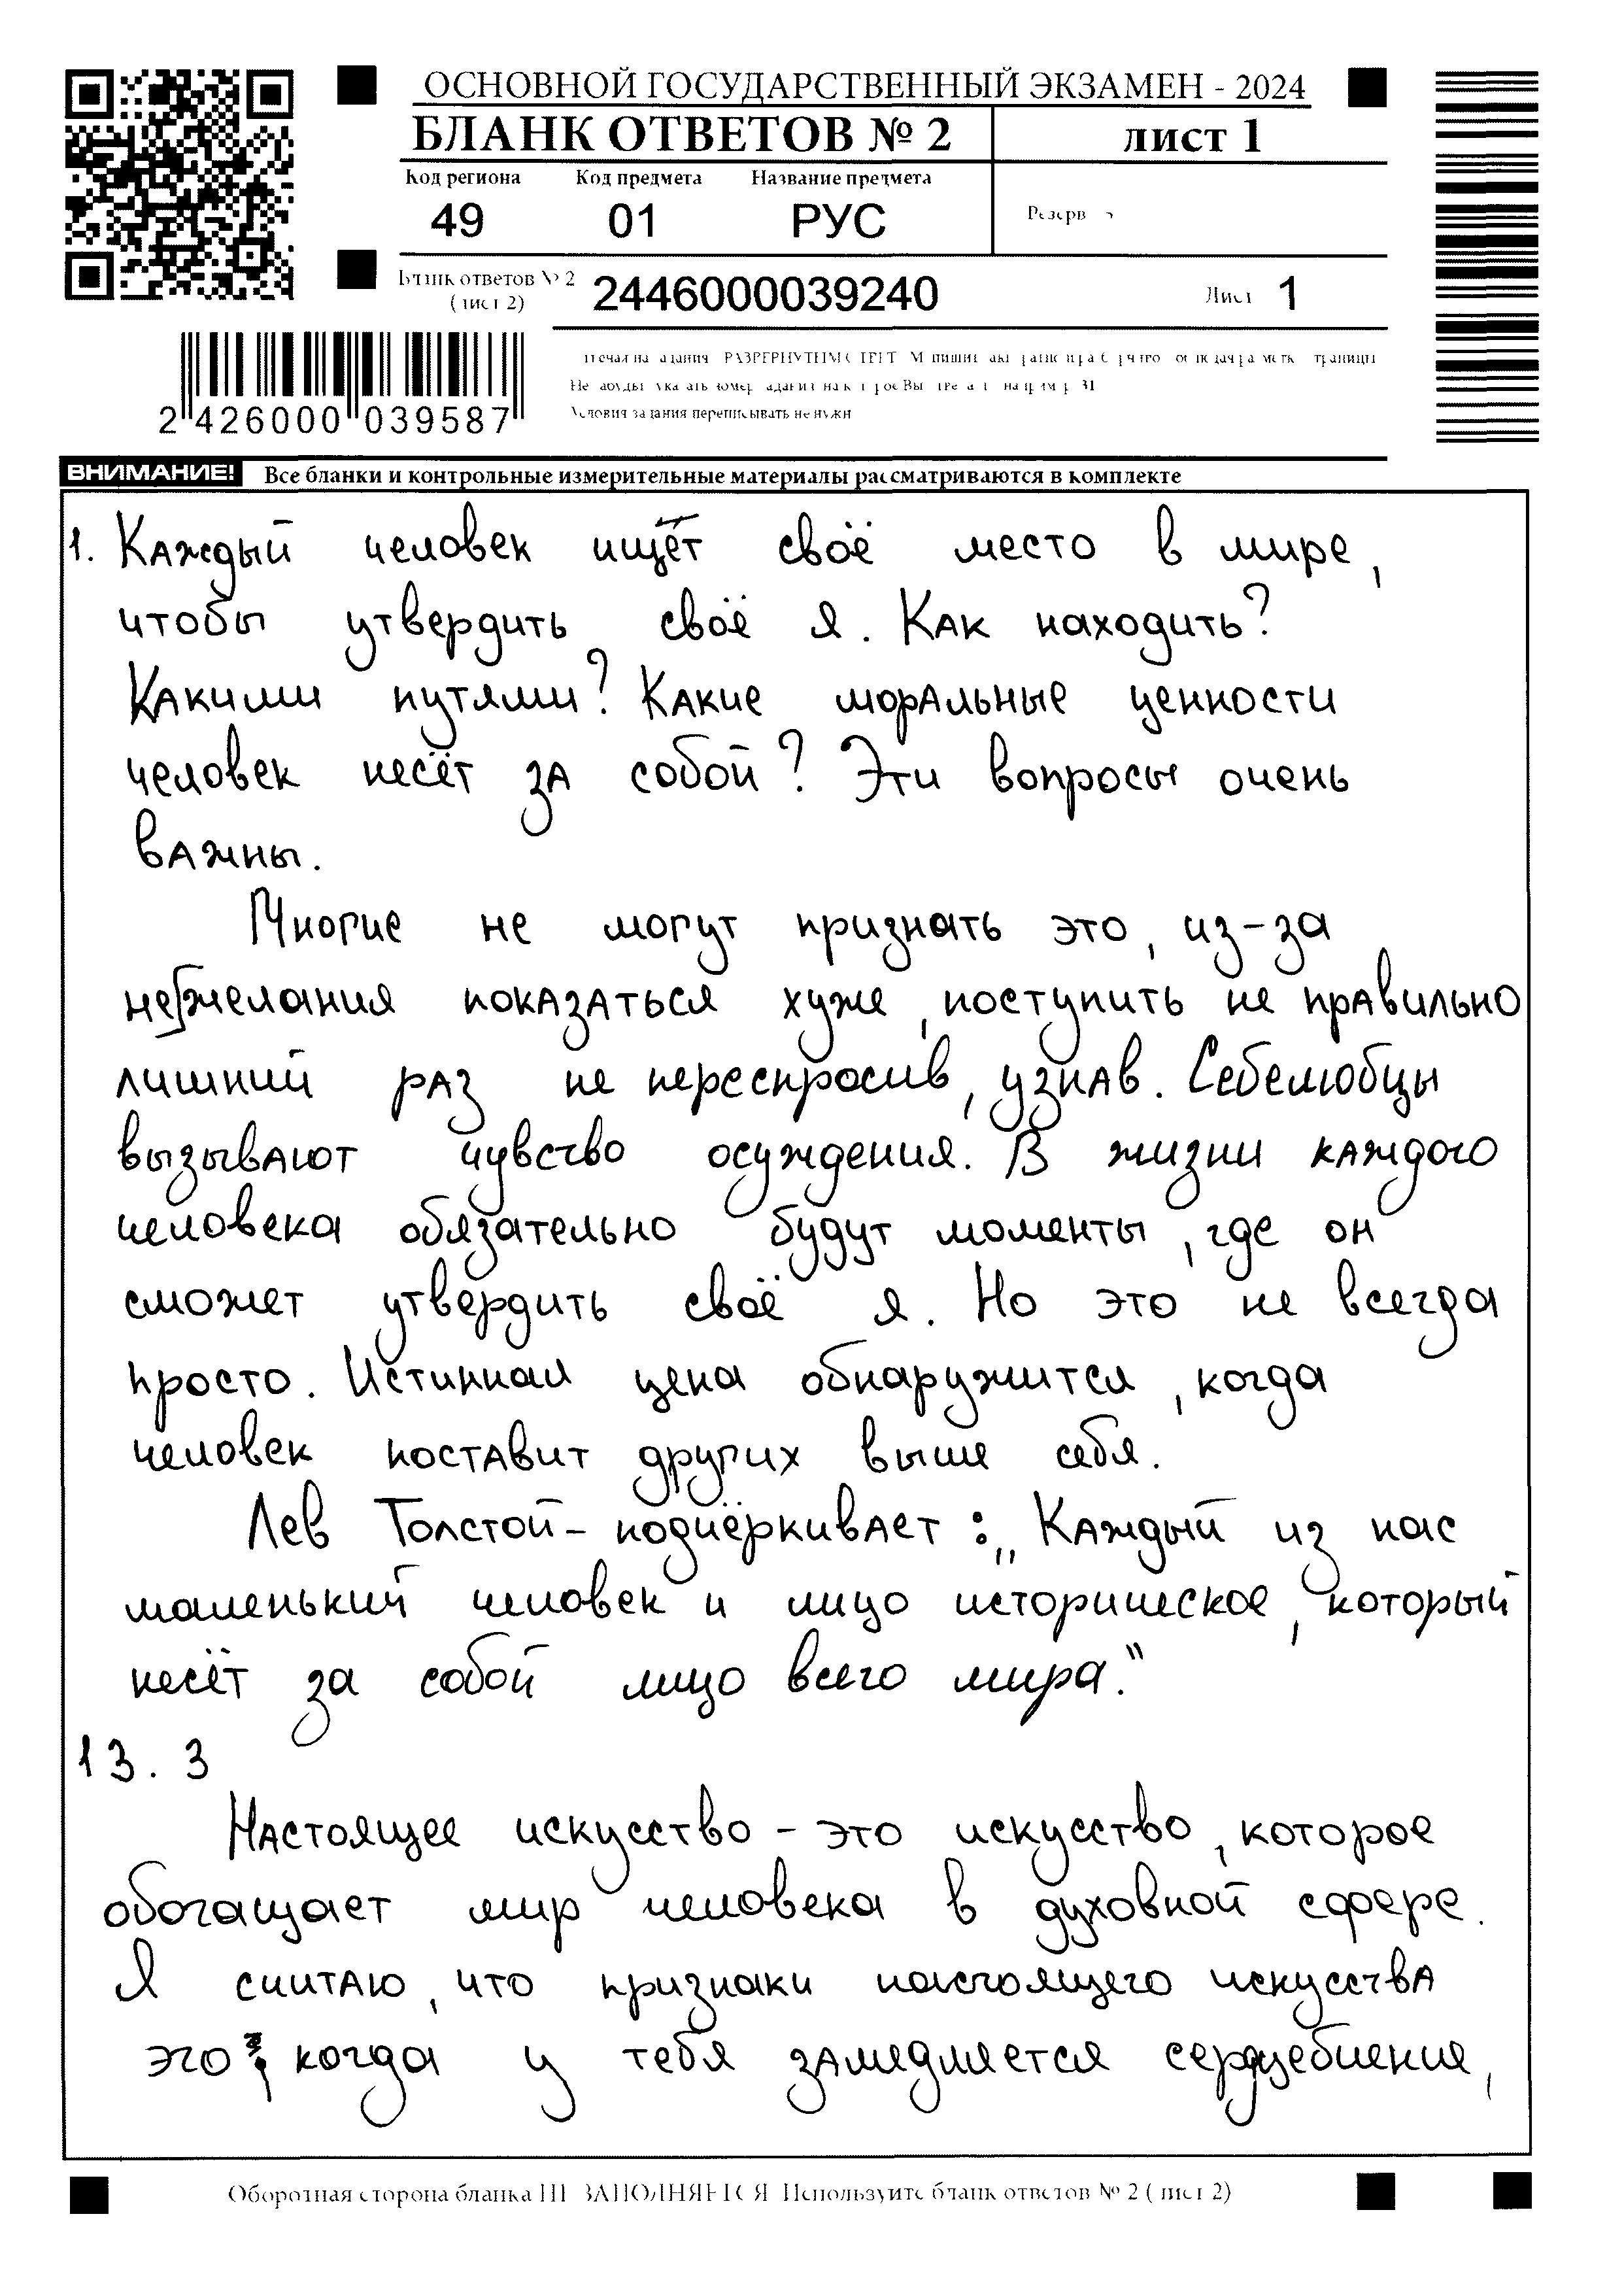 ОСНОВНОЙ ГОСУДАРСТВЕННЫЙ ЭКЗАМЕН - 2024
БЛАНК ОТВЕТОВ № 2
лист 1
Код региона Код предмета Название предмета
49 01 РУС
Резерв
Бланк ответов № 2
(лист 2)
2446000039240
Лист 1
2 426000 039587
Условия задания переписывать не нужн
ВНИМАНИЕ! Все бланки и контрольные измерительные материалы рассматриваются в комплекте
1. Каждый человек ищет своё место в мире,
чтобы утвердить своё я. Как находить?
Какими путями? Какие моральные ценности
человек несёт за собой? Эти вопросы очень
важны.
Многие не могут признать это, из-за
нежелания показаться хуже, поступить не правильно
лишний раз не переспросив, узнав. Себелюбцы
вызывают чувство осуждения. В жизни каждого
человека обязательно будут моменты, где он
сможет утвердить своё я. Но это не всегда
просто. Истинная цена обнаружится, когда
человек поставит других выше себя.
Лев Толстой - подчёркивает: „Каждый из нас
маленький человек и лицо историческое, который
несёт за собой лицо всего мира."
13. 3
Настоящее искусство - это искусство, которое
обогащает мир человека в духовной сфере.
Я считаю, что признаки настоящего искусства
это, когда у тебя замедляется сердцебиение,
Оборотная сторона бланка НЕ ЗАПОЛНЯЕТСЯ. Используйте бланк ответов № 2 (лист 2)